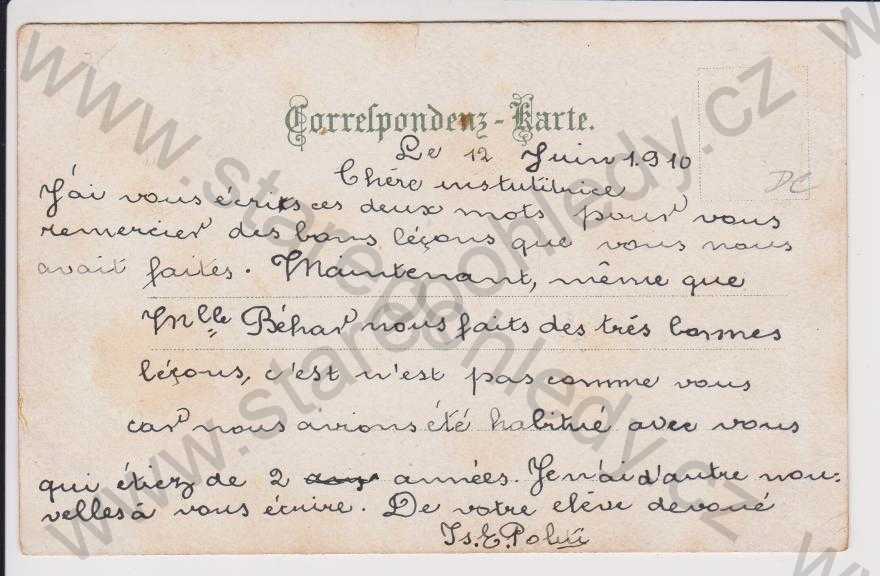 Correspondenz-Karte.
Le 12 Juin 1910
Chére instutitrice
J'ai vous écrits ces deux mots pour vous
remercier des bons léçons que vous nous
avait faites. Maintenant, même que
Mlle Béhar nous faits des trés bonnes
léçons, c'est n'est pas comme vous
car nous avions été habitué avec vous
qui étiez de 2 années. Je n'ai d'autre nou=
velles à vous écrire. De votre elève devoué
Is. E.
DC
www.starepohledy.cz
www.starepohledy.cz